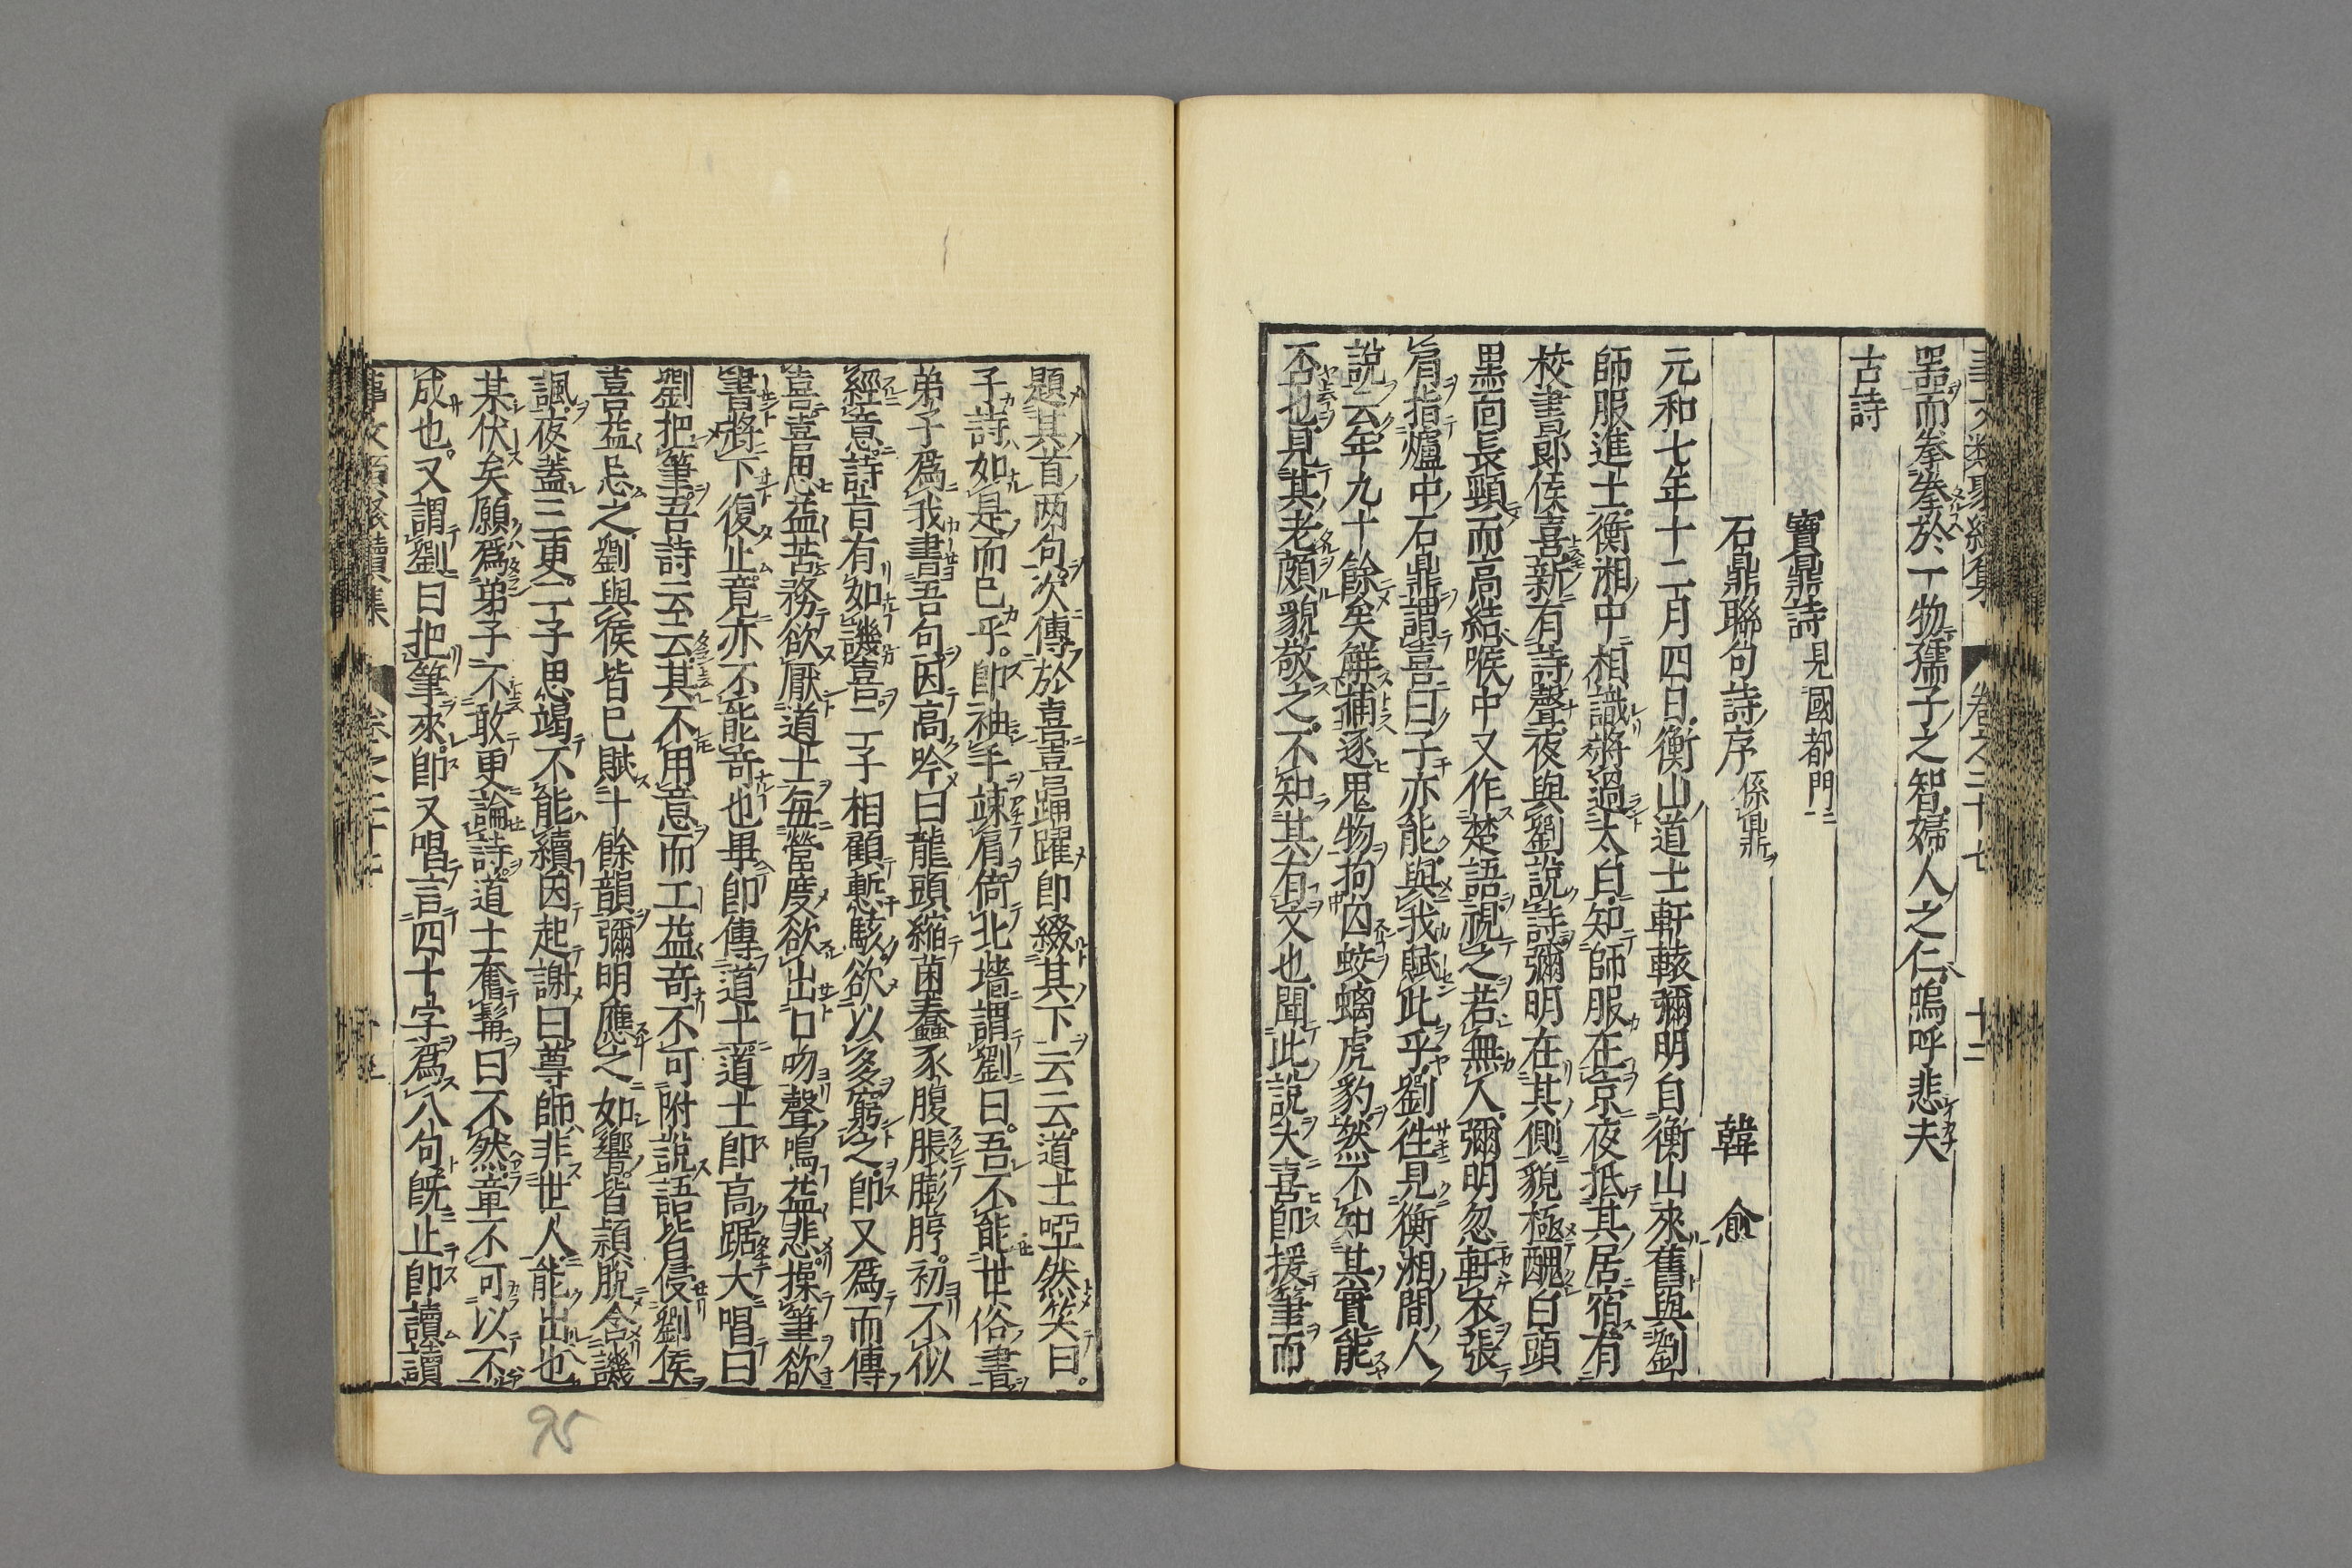 事文類聚續集　卷之二十七　十二
器而拳拳於一物孺子之智婦人之仁嗚呼悲夫
古詩
寶鼎詩見國都門
石鼎聯句詩序係鼎　韓愈
元和七年十二月四日衡山道士軒轅彌明自衡山來舊與劉
師服進士衡湘中相識將過太白知師服在京夜抵其居宿有
校書郎侯喜新有詩聲夜與劉說詩彌明在其側貌極醜白頭
黑面長頸而高結喉中又作楚語視之若無人彌明忽軒衣張
肩指爐中石鼎謂喜曰子亦能與我賦此乎劉徃見衡湘間人
說云年九十餘矣觧捕逐鬼物拘囚蛟螭虎豹然不知其實能
否也見其老頗貌敬之不知其有文也聞此說大喜卽援筆而
題其首两句次傳於喜喜踊躍卽綴其下云云道士啞然笑曰
子詩如是而已乎卽袖手竦肩倚北墻謂劉曰吾不能世俗書
弟子爲我書吾句因高吟曰龍頭縮菌蠢豕腹脹膨脝初不似
經意詩旨有如譏喜二子相顧慙駭欲以多窮之卽又爲而傳
喜喜思益苦務欲厭道士每營度欲出口吻聲鳴益悲操筆欲
書將下復止竟亦不能奇也畢卽傳道士道士卽高踞大唱曰
劉把筆吾詩云云其不用意而工益奇不可附說語皆侵劉侯
喜益忌之劉與侯皆已賦十餘韻彌明應之如響皆頴脫含譏
諷夜蓋三更二子思竭不能續因起謝曰尊師非世人能出也
某伏矣願爲弟子不敢更論詩道士奮髯曰不然章不可以不
成也又謂劉曰把筆來卽又唱言四十字爲八句旣止卽讀讀
95